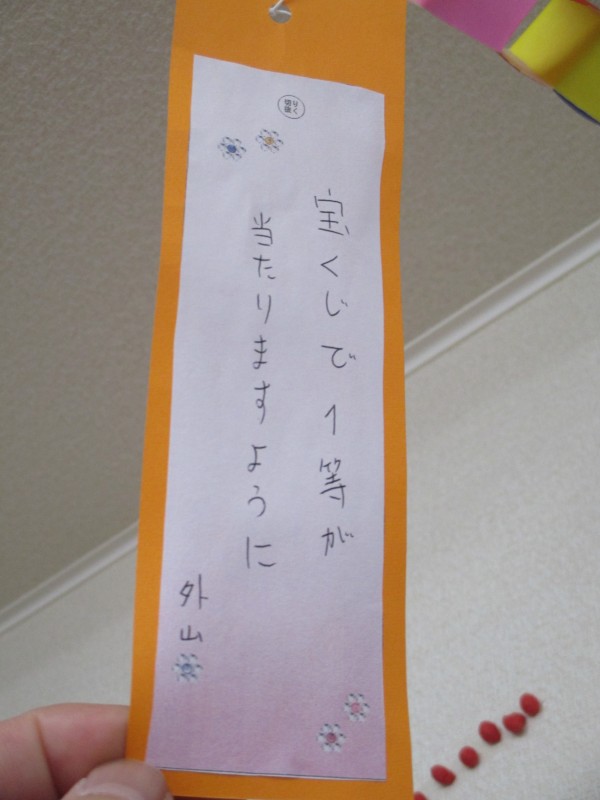 切り抜く
宝くじで1等が
当たりますように
外山